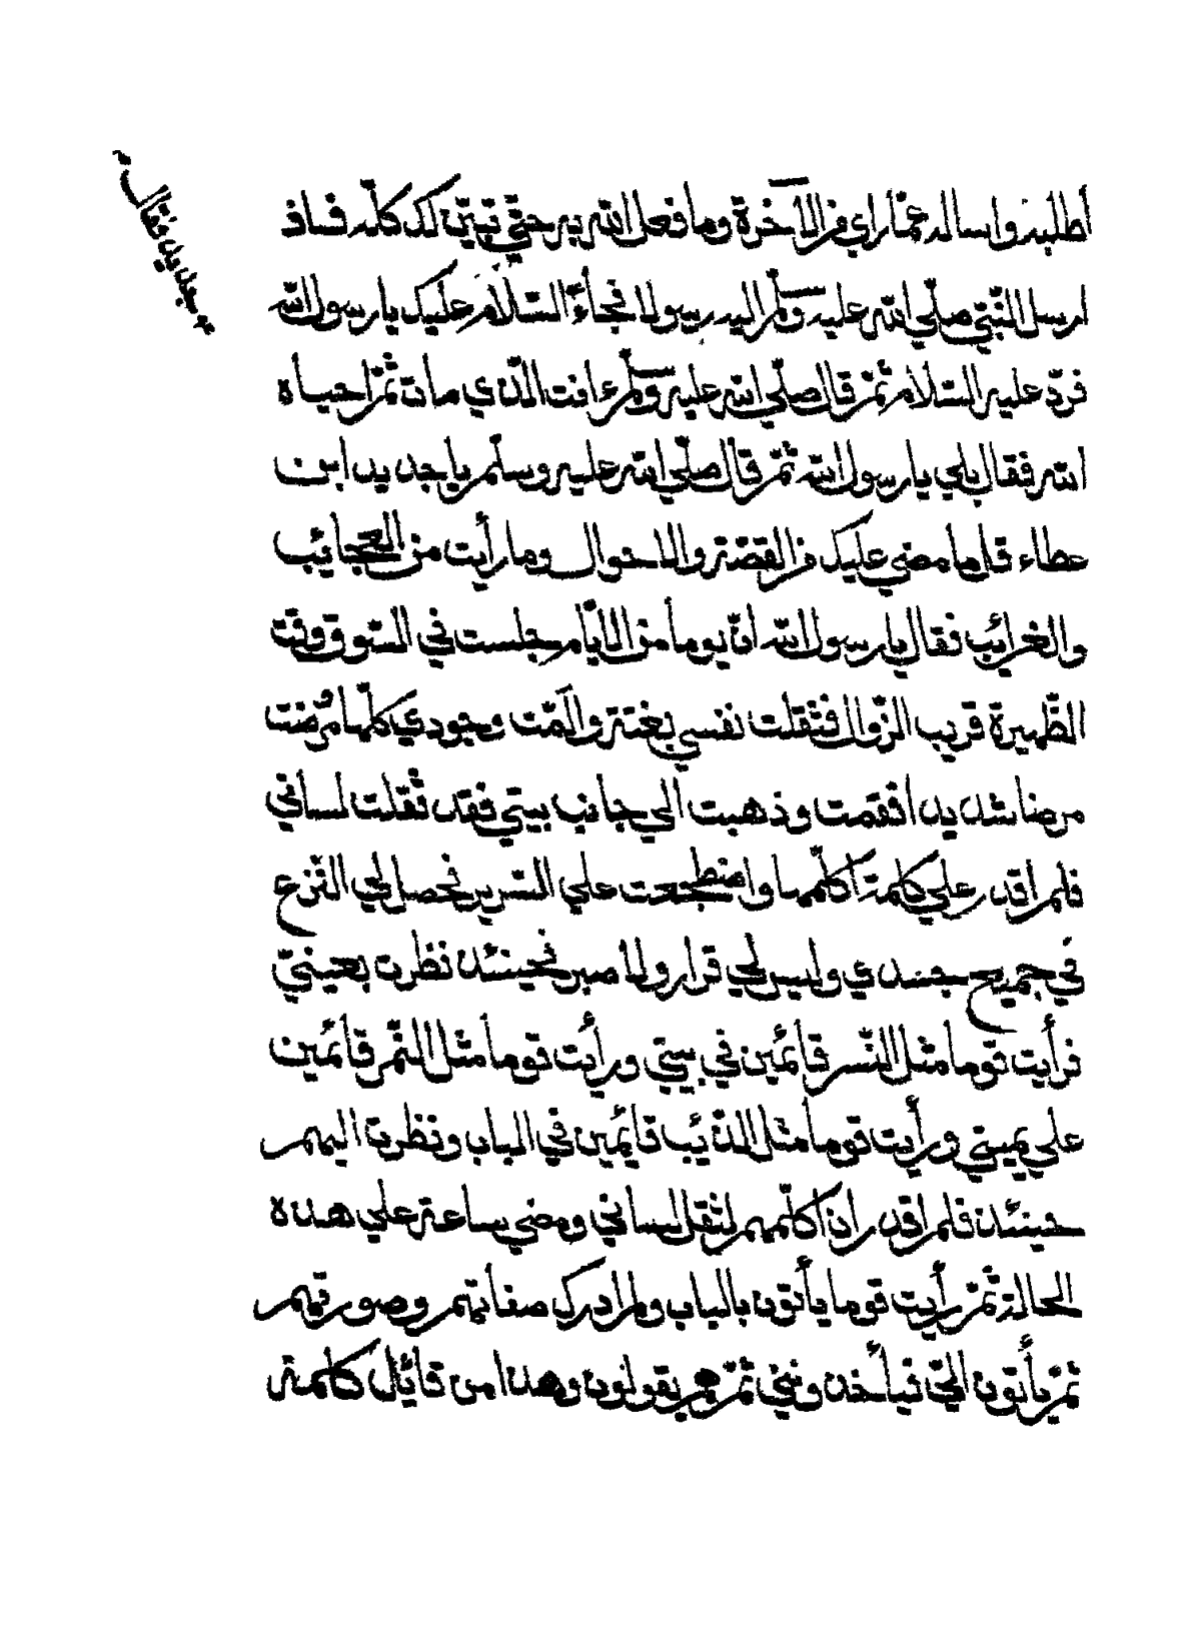 أطلبه واساله عمّا راي من الآخرة وما فعل الله به حتّي تبيّن لك كلّه فساذ
ارسل النّبيّ صلّي الله عليه وسلّم اليه رسولا فجاءَ السّلام عليك يا رسول الله
فردّ عليه السّلام ثمّ قال صلّي الله عليه وسلّم ءانت الّذي مات ثمّ احياه
الله فقال بلي يا رسول الله ثمّ قال صلّي الله عليه وسلّم يا جديد ابن
عطاء قل ما مضي عليك من القصّة والاحوال وما رأيت من العجائب
والغرائب فقال يا رسول الله انّ يوما من الايّام جلست في السّوق وقت
الظّهيرة قريب الزّوال فثقلت نفسي بغتة والَمّت وجودي كلّها مُرّضت
مرضا شديدا فقمت وذهبت الي جانب بيتي فقد ثقلت لساني
فلم اقدر علي كلمة اكلّمها واضطجعت علي السّرير فحصل لي النّزع
في جميع جسدي وليس لي قرار ولا صبر فحينئذ نظرت بعينيّ
فرأيت قوما مثل النّسر قائمين في بيتي ورأيت قوما مثل النّمر قائمين
علي يميني ورأيت قوما مثل الذّئب قائمين في الباب ونظرت اليهم
حينئذ فلم اقدر ان اكلّمهم لثقل لساني ومضي ساعة علي هذه
الحالة ثمّ رأيت قوما يأتون بالباب ولم ادرك صفاتهم وصورتهم
ثمّ يأتون اليّ فيأخذونني ثمّ هم يقولون وهذا من قائل كلمة
جديد فقال